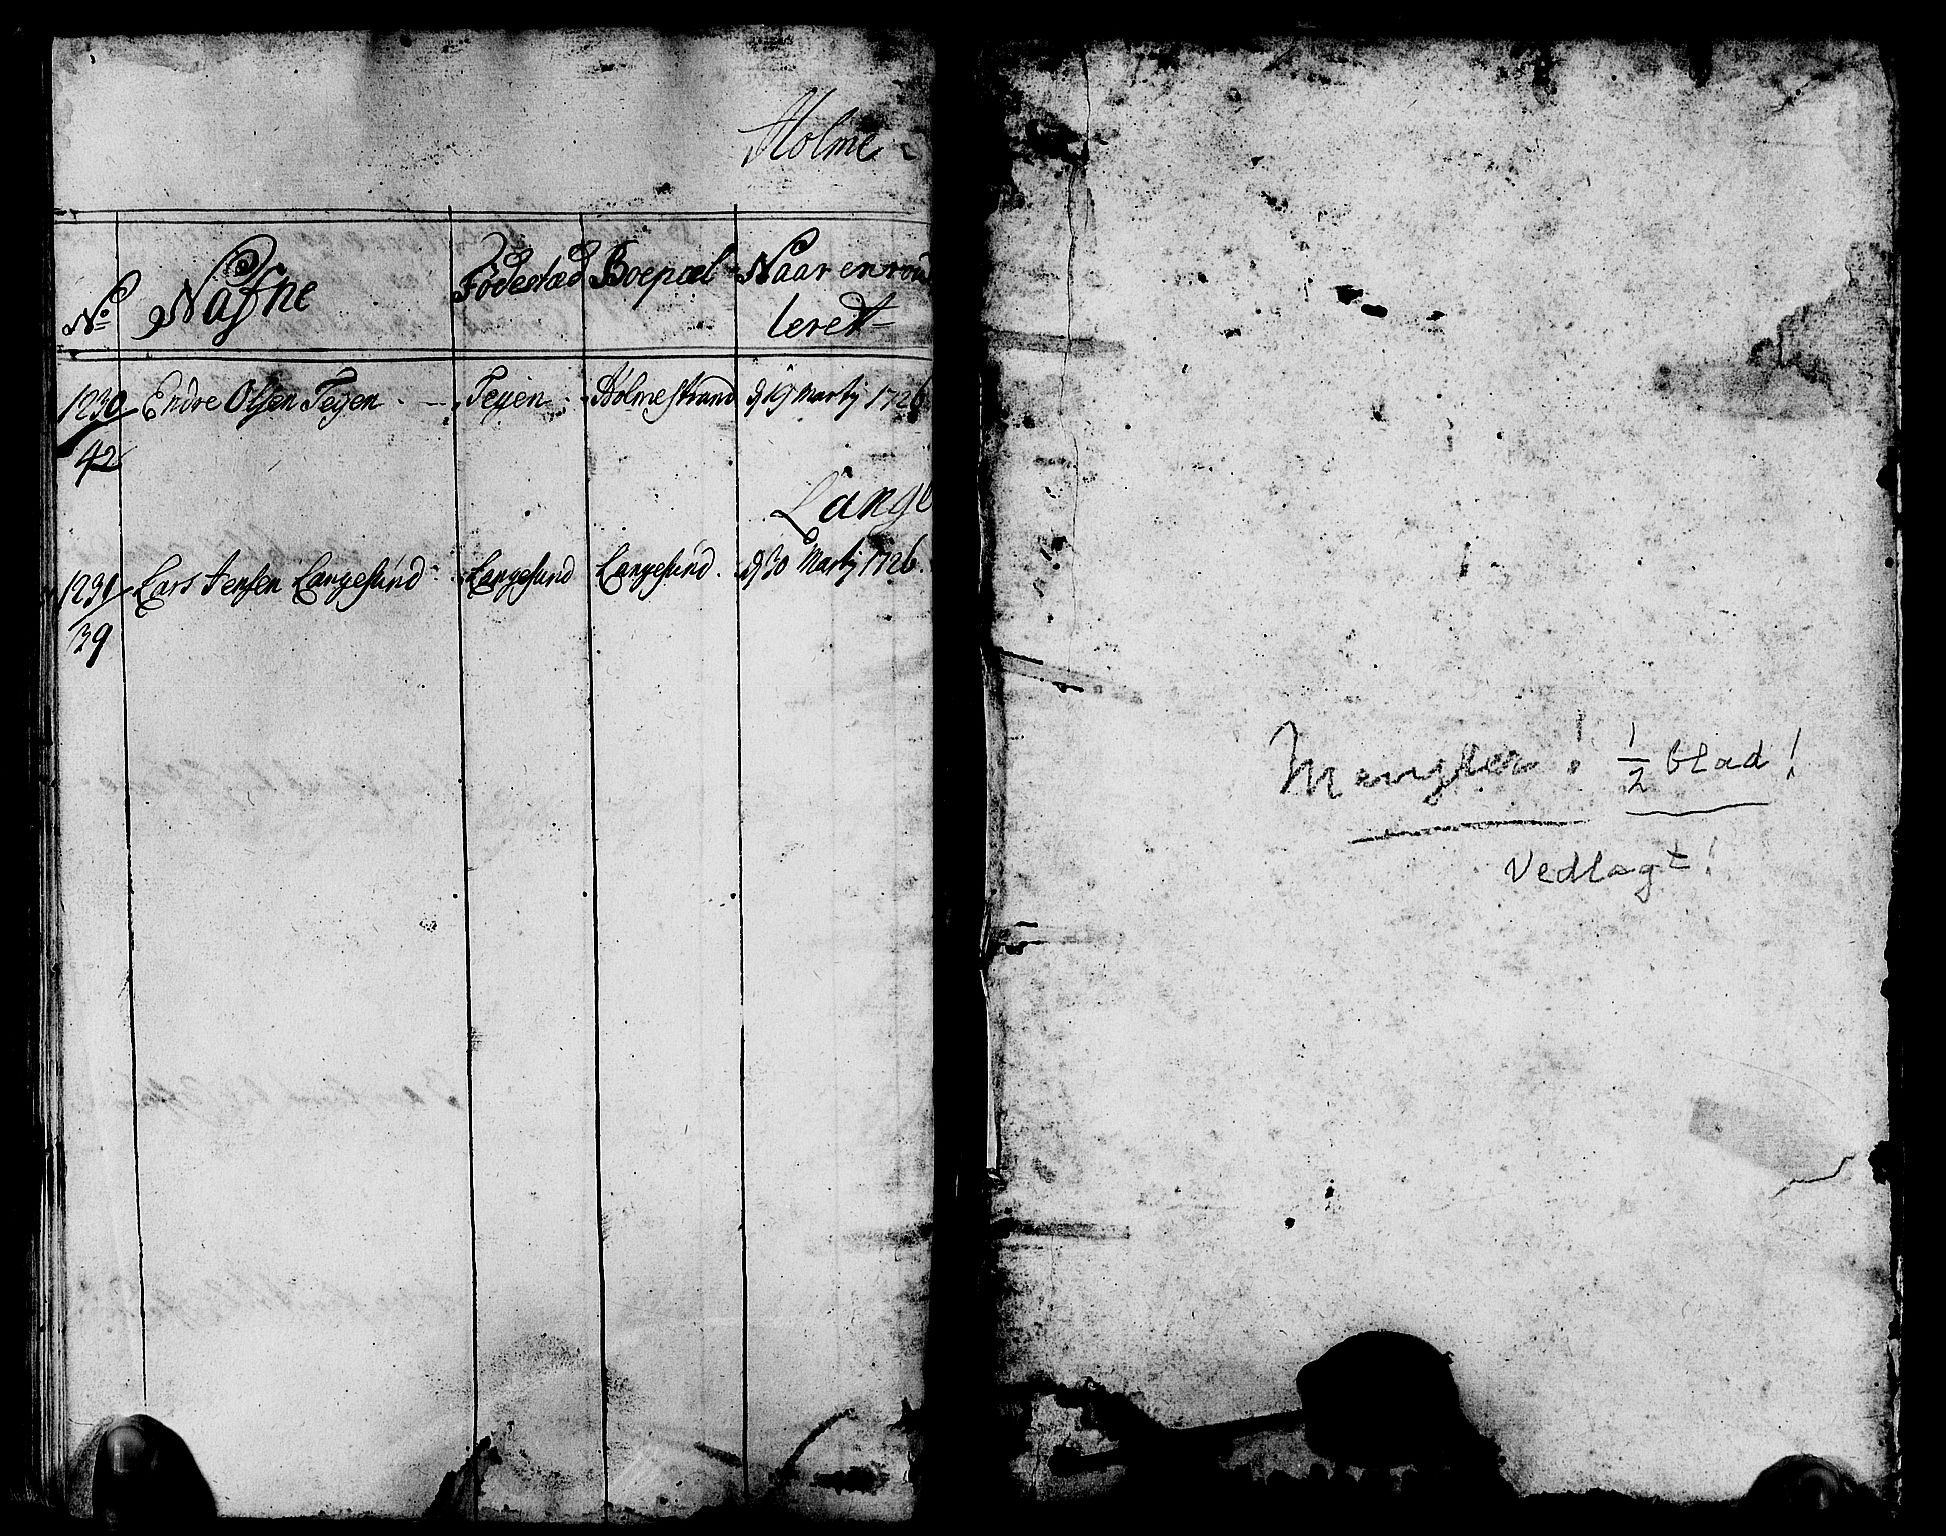 Holme-
No Nafne Fødestæd Boepæl Naar enrou
leret
1230 Endre Olsen Teyen Teyen Holmestrand d 19 Martj 1726
42
Lange
1231 Lars Jensen Langesund Langesund Langesund d 30 Martj 1726.
39
Mangler! 1/2 blad!
Vedlagt!